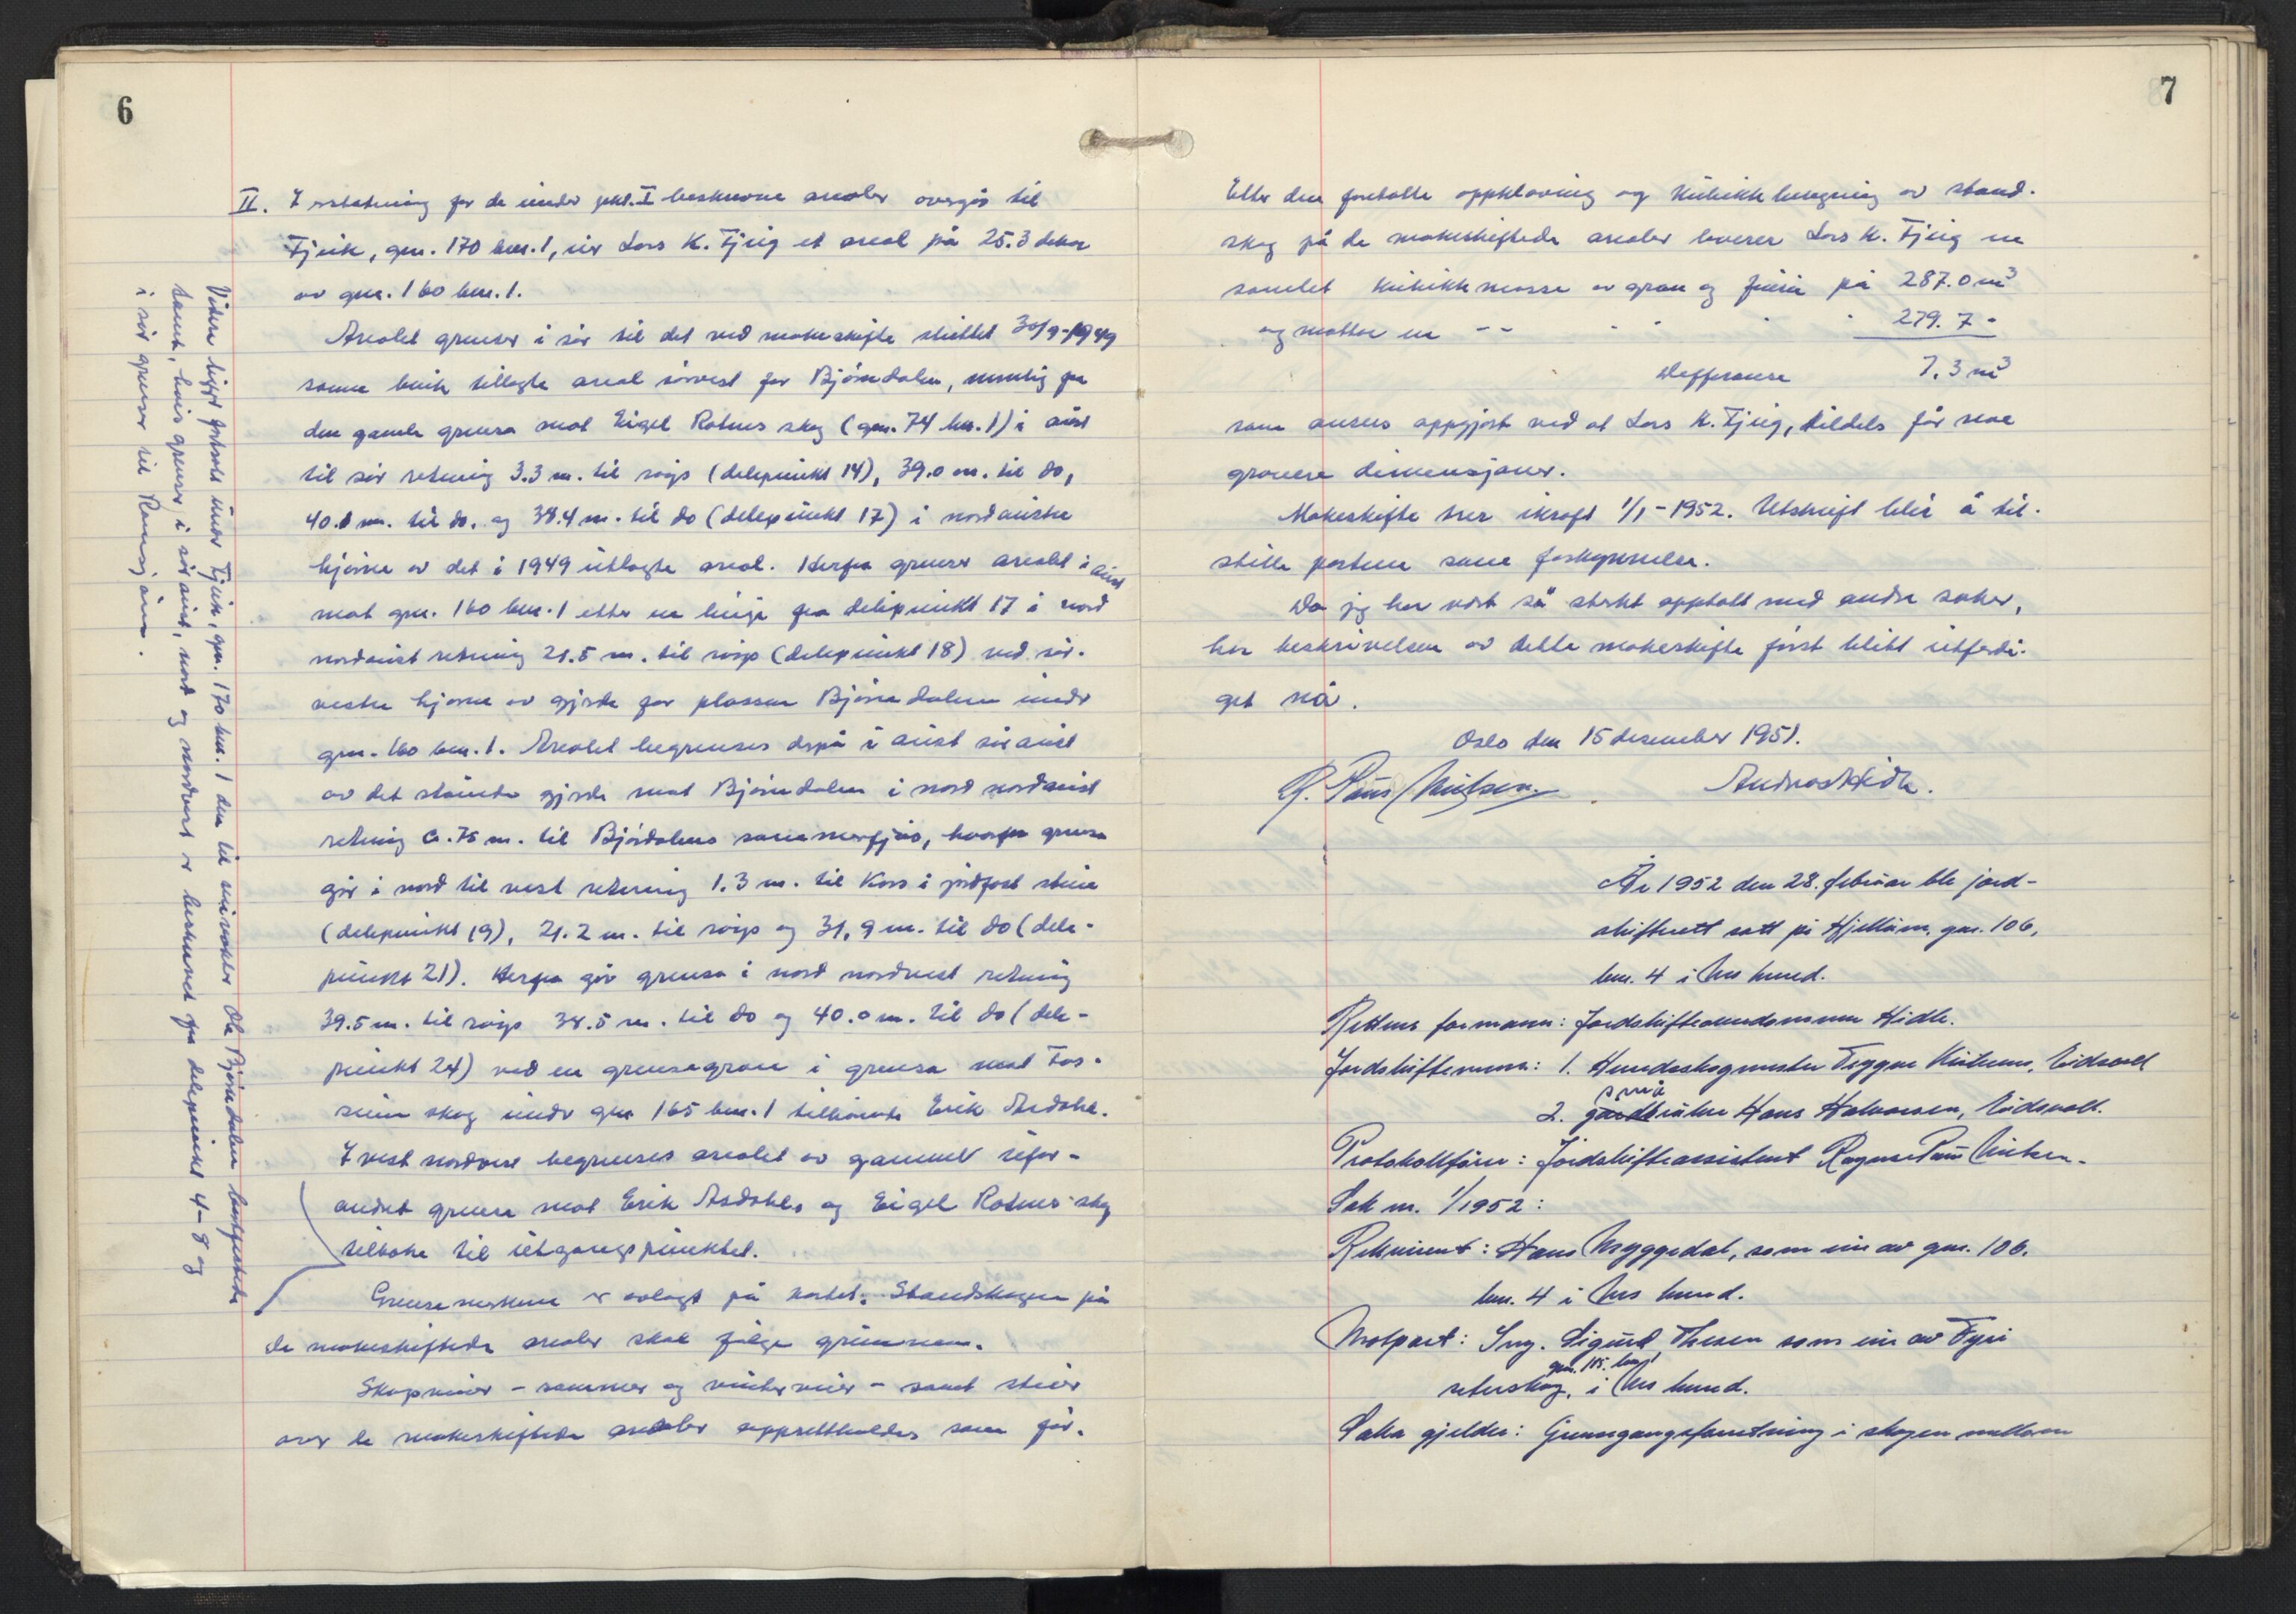 6
II. I erstatning for de under pkt. I beskrevne arealer overgår til
Fjeik, gnr. 170 bnr. 1, eier Lars K. Fjeig et areal på 25.3 dekar
av gnr. 160 bnr. 1.
Arealet grenser i sør til det ved makeskifte sluttet 30/9-1949
samme bruk tillagte areal sørvest for Bjørndalen, nemlig fra
den gamle grensa mot Eigel Rotnes skog (gnr. 74 bnr. 1) i aust
til sør retning 3.3 m. til røys (delepunkt 14), 39.0 m. til do,
40.0 m. til do. og 38.4 m. til do (delepunkt 17) i nordaustre
hjørne av det i 1949 utlagte areal. Herfra grenser arealet i aust
mot gnr. 160 bnr. 1 etter en linje fra delepunkt 17 i nord
nordaust retning 21.5 m. til røys (delepunkt 18) ved sør-
vestre hjørne av gjerde for plassen Bjørndalen under
gnr. 160 bnr. 1. Arealet begrenses derpå i aust søraust
av det stående gjerde mot Bjørndalen i nord nordaust
retning c. 75 m. til Bjørdalens sommerfjøs, hvorfra grensa
går i nord til vest retning 1.3 m. til kors i jordfast stein
(delepunkt 19), 21.2 m. til røys og 31,9 m. til do (dele-
punkt 21). Herfra går grensa i nord nordvest retning
39.5 m. til røys 38.5 m. til do og 40.0 m. til do (dele-
punkt 24) ved en grensegran i grensa mot
skog under gnr 165 bnr. 1 tilhørende Erik Asdahl.
I vest nordvest begrenses arealet av gammel ufor-
andret grense mot Erik Asdahls og Eigel Rotnes skog
tilbake til utgangspunktet.
Grensemerkene er avlagt på kartet. Standskogen på
de makeskiftede arealer skal følge grunnen.
Skogsveier - sommer og vinterveier - samt stier
over de makeskiftede arealer opprettholdes som før.
Videre ligger fortsatt under Fjeik, gnr. 170 bnr. 1 den til Ola Bjørndalen bortfestede
tomt, hvis grenser i søraust, nord og nordvest er beskrevet fra delepunkt 4-8 og
i sør grenser til
7
Etter den foretatte oppklaving og kubikkberegning av stand-
skog på de makeskiftede arealer leverer Lars K. Fjeig en
samlet kubikkmasse av gran og furu på 287.0 m³
og mottar en - - - - - 279.7 -
Differanse 7.3 m³
som anses oppgjort ved at Lars K. Fjeig, tildels får noe
grovere dimensjoner.
Makeskifte trer ikraft 1/1-1952. Utskrift blir å til-
stille partene samt forkynnelse.
Da jeg har vært så sterkt opptatt med andre saker,
har beskrivelsen av dette makeskifte først blitt utferdi-
get nå.
Oslo den 15 desember 1951.
R. Paus Nielsen. Andreas Hidle.
År 1952 den 28. februar ble jord-
skifterett satt på Hjellum, gnr. 106,
bnr. 4 i Nes herred.
Rettens formann: Jordskiftedommer Hidle.
Jordskiftemenn: 1. Herredsskogmester Trygve Eidsvoll
2. småbruker Hans Halvorsen, Eidsvoll.
Protokollfører: Jordskifteassistent Ragnar Paus Nielsen.
Sak nr. 1/1952:
Rekvirent: Hans Myggedal, som eier av gnr. 106.
bnr. 4 i Nes herred.
Motpart: Ing. Sigurd Thesen som eier av Fyri
seterskog, gnr. 115. bnr 1 i Nes herred.
Saka gjelder: Grensegangsforretning i skogen mellom